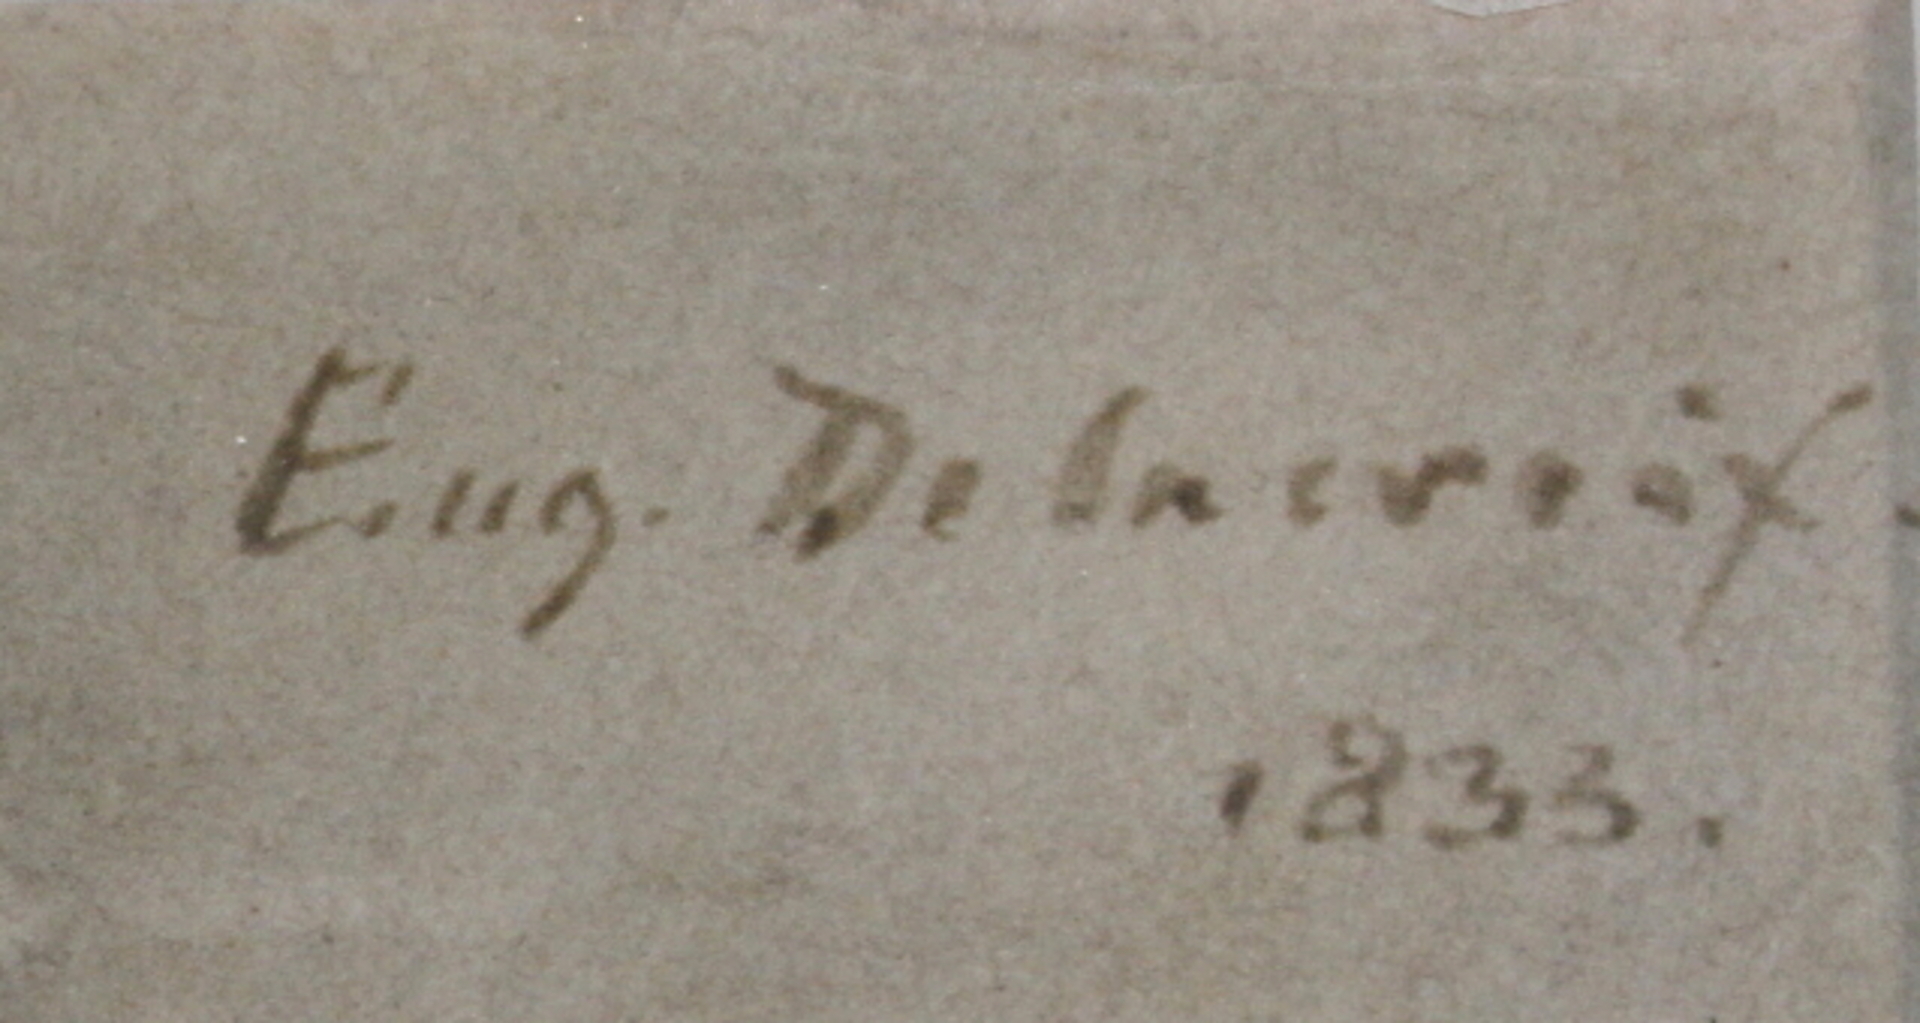 Eug. Delacroix.
1833.